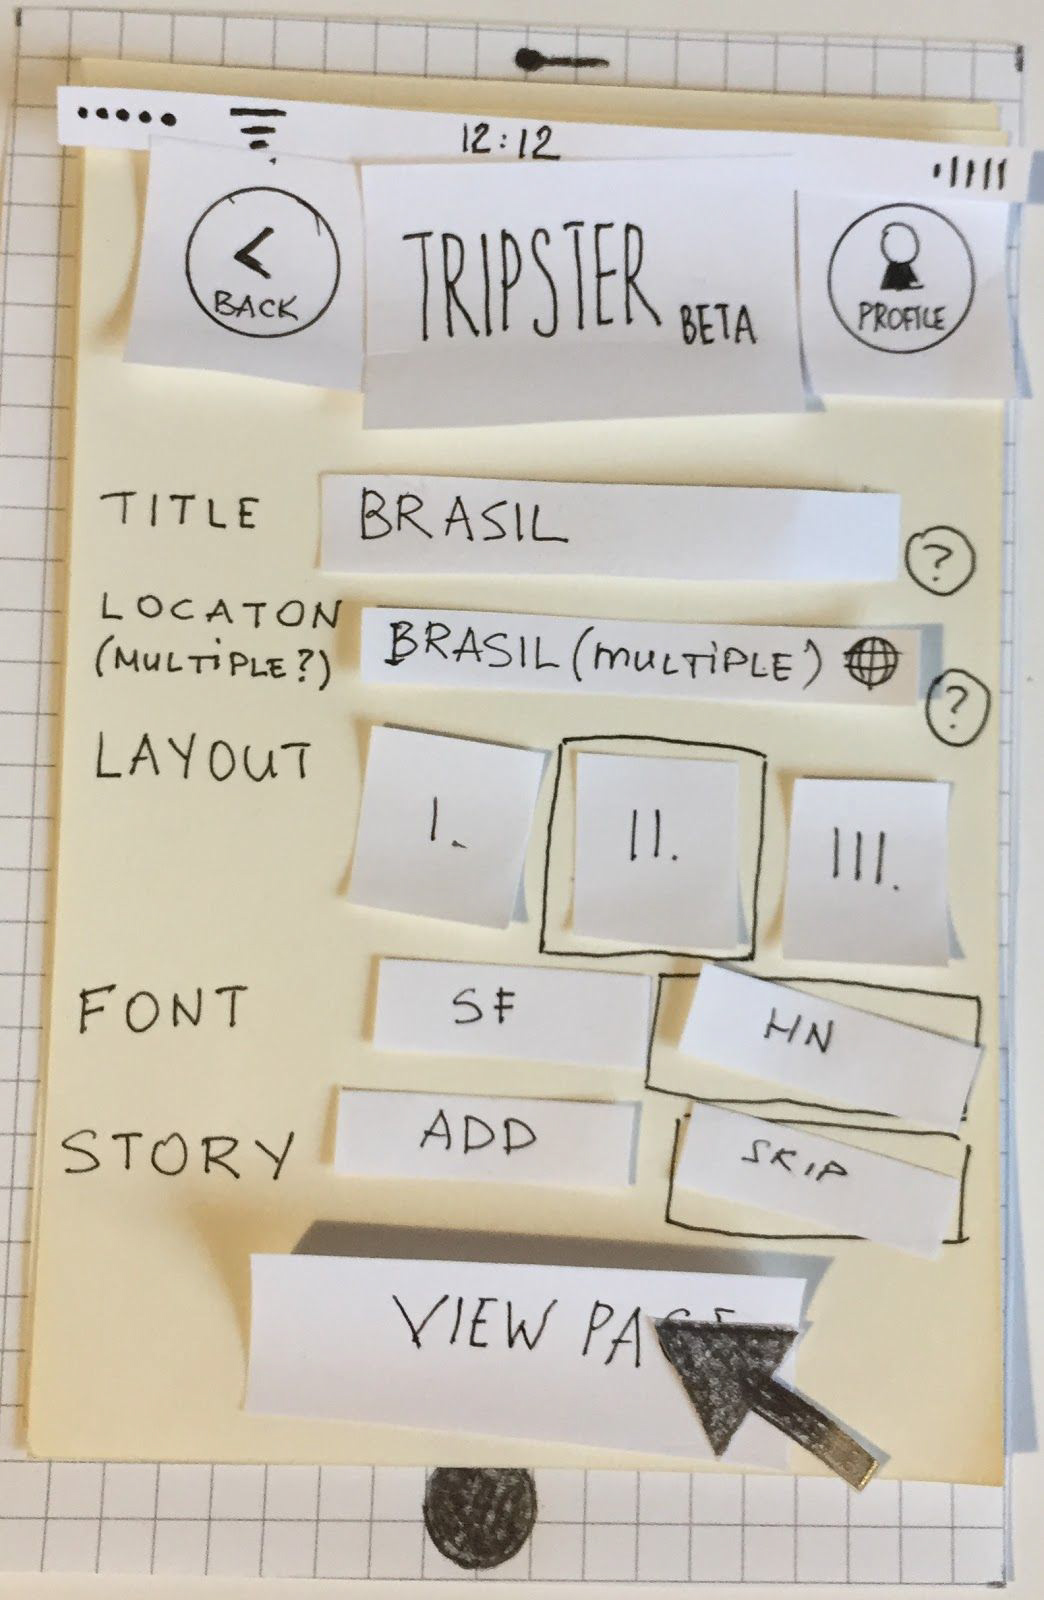 12:12
< BACK
TRIPSTER BETA
PROFILE
TITLE BRASIL ?
LOCATON
(MULTIPLE?) BRASIL (MULTIPLE) ?
LAYOUT I. II. III.
FONT SF HN
STORY ADD SKIP
VIEW PAGE